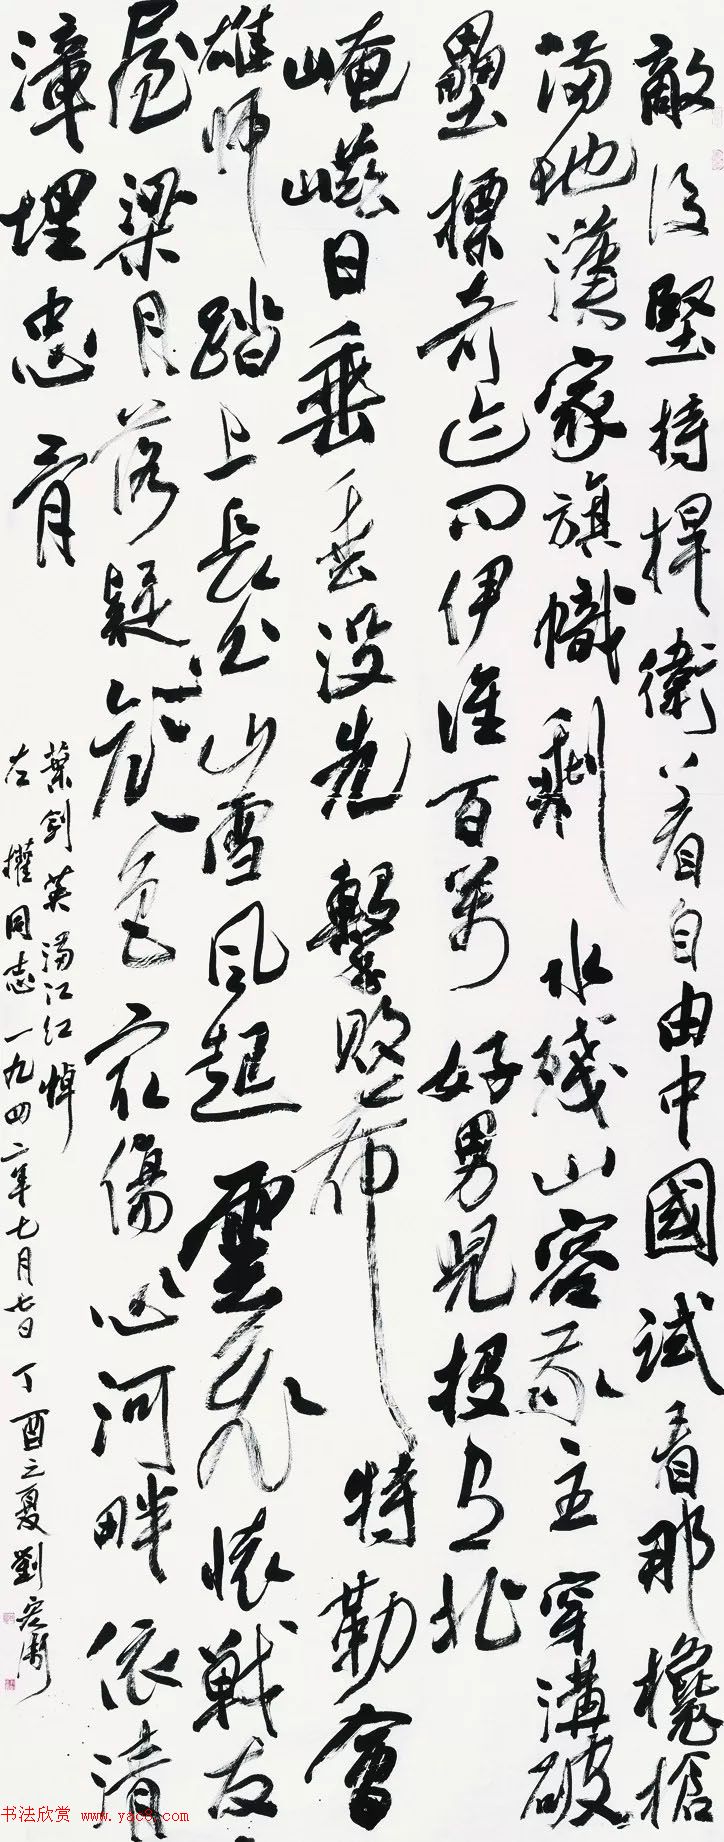 敵後堅持捍衛着自由中國試看那欃槍
滿地漢家旗幟剩水殘山容我主穿溝破
壘標奇迹問伊誰百萬好男兒投有北
崦嵫日垂垂没先擊敗希特勒會
雄師踏上長白山雪風起雲飛懷戰友
屋梁月落疑顏色最傷心河畔依清
漳埋忠骨
葉劍英滿江紅悼
左權同志一九四二年七月七日丁酉之夏劉
书法欣赏 www.yac8.com